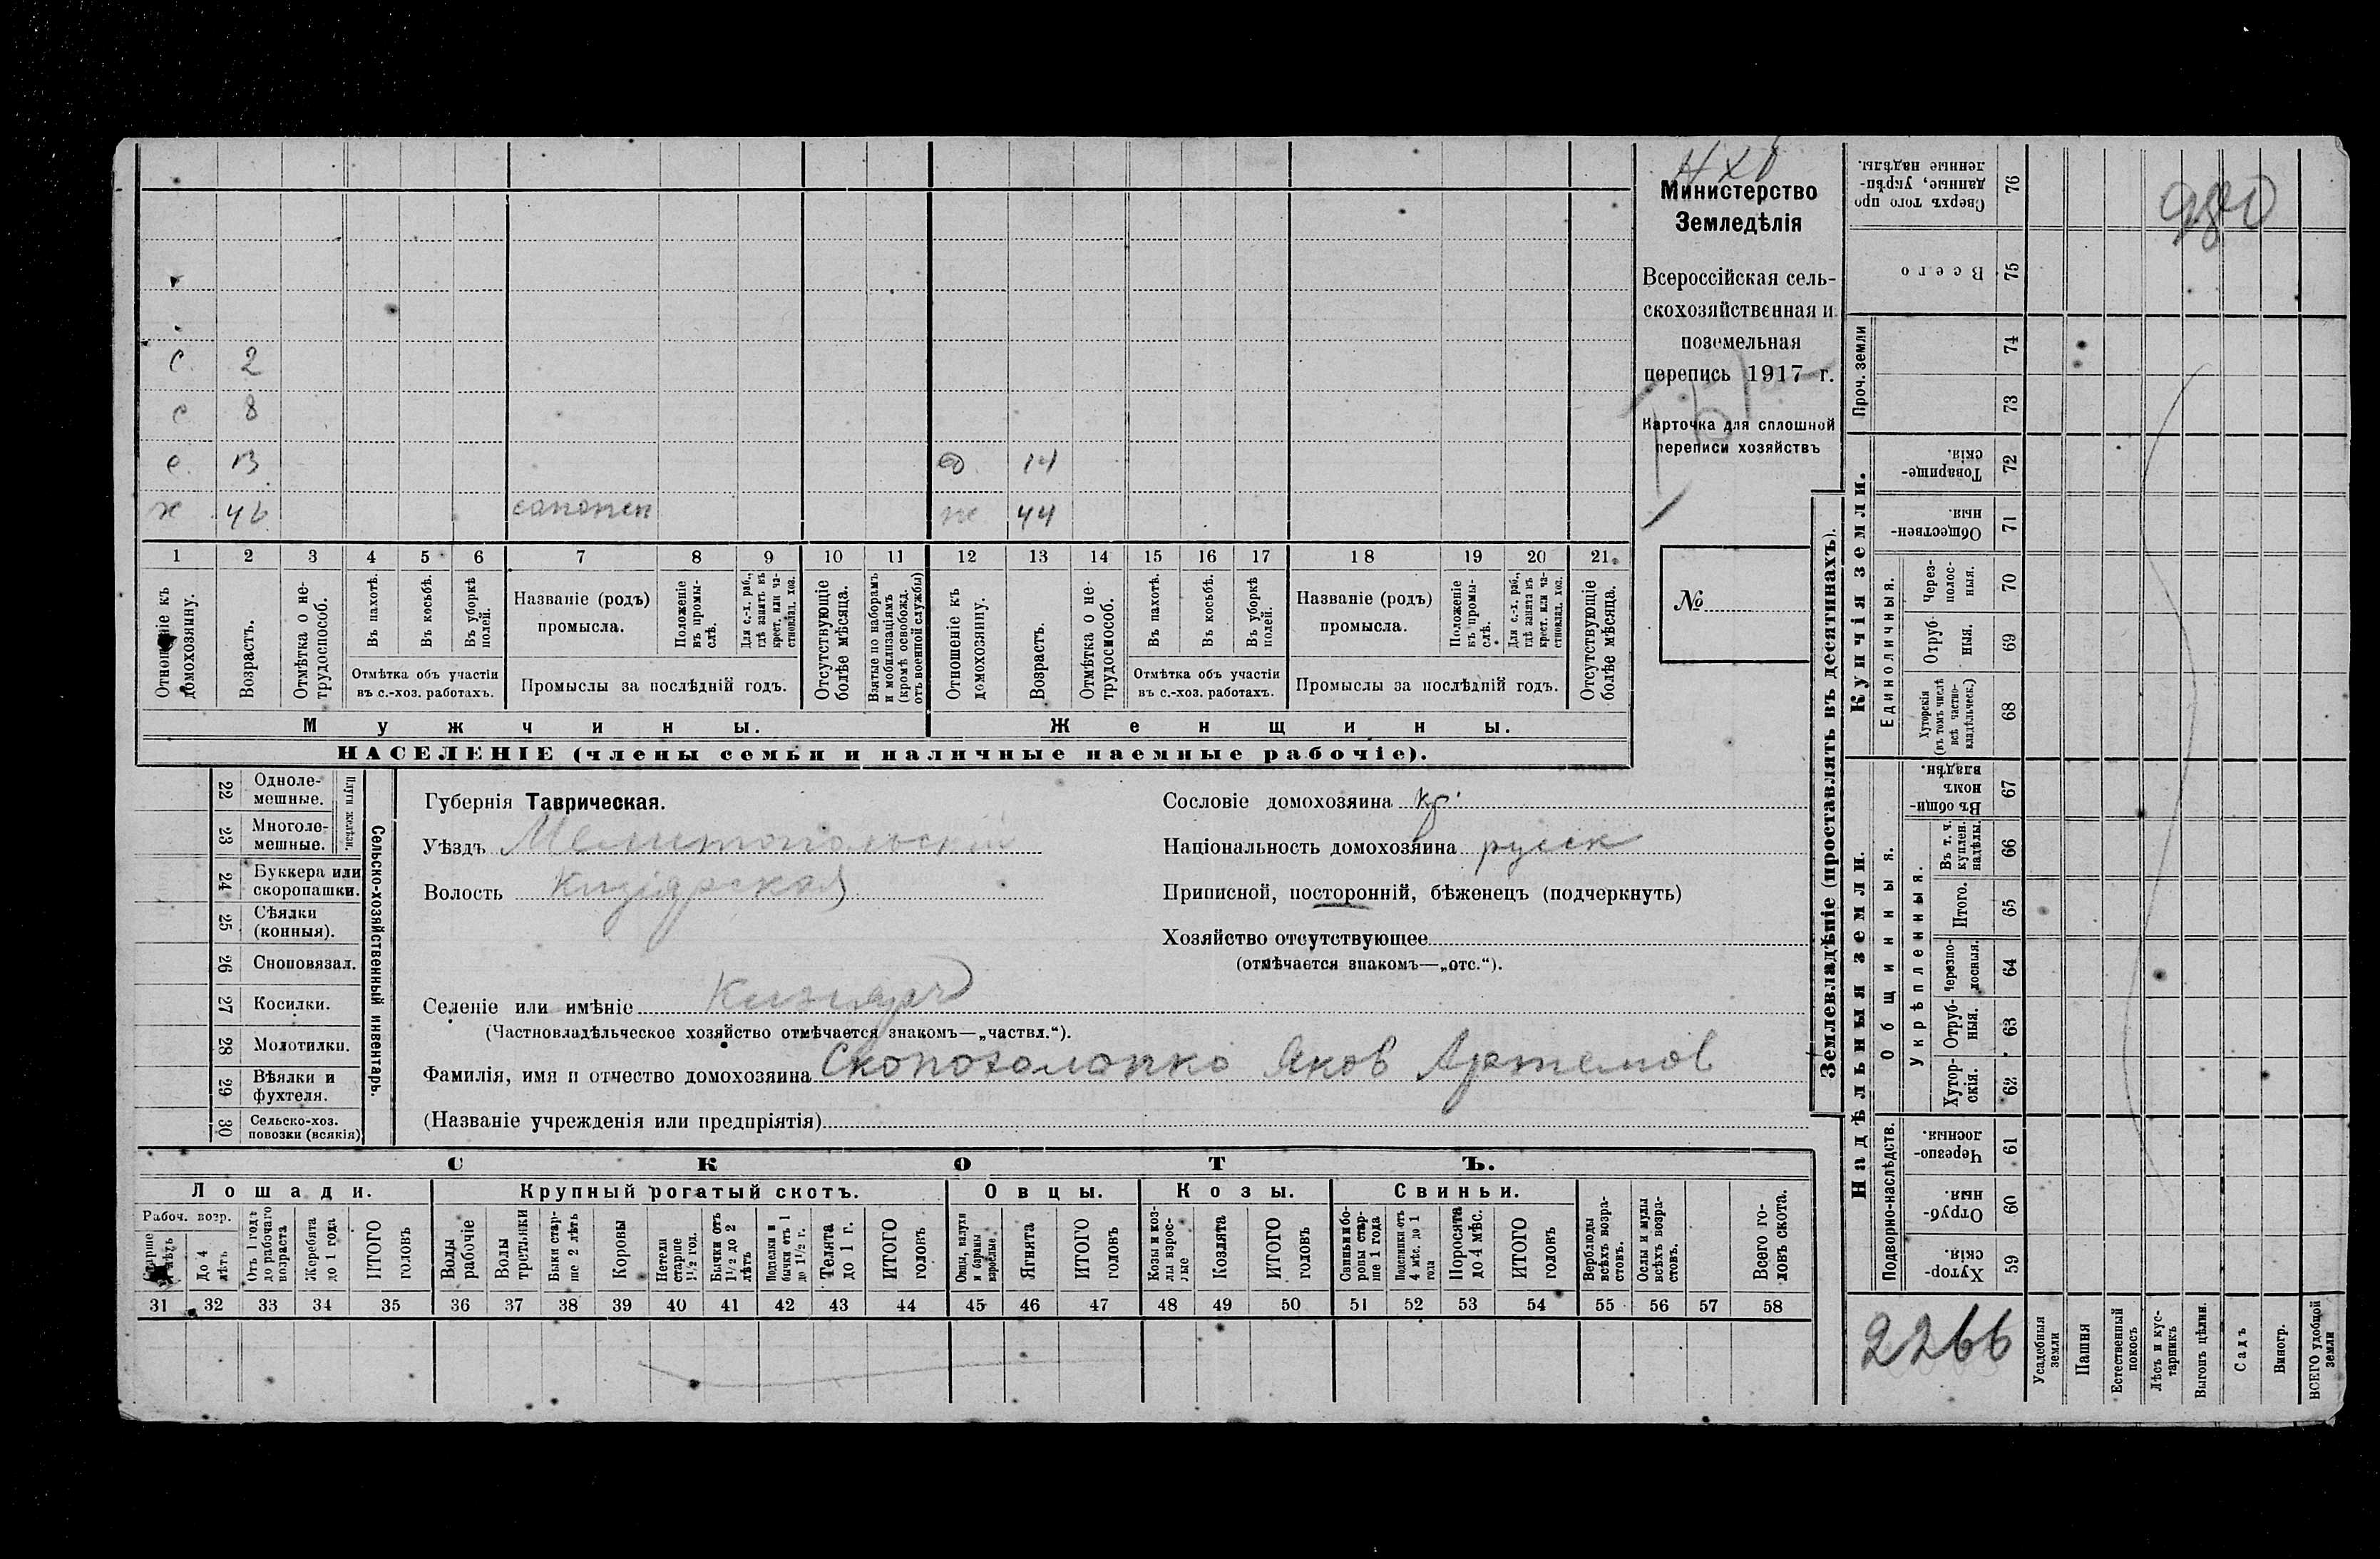 Министерство
Земледѣлія
Всероссійская сель-
скохозяйственная и
поземельная
перепись 1917 г.
Карточка для сплошной
переписи хозяйствъ
№
с. 2
с 8
с. 13 14
х 46 ж 44
1 2 3 4 5 6 7 8 9 10 11 12 13 14 15 16 17 18 19 20 21
Отношеніе къ домохозяину.
Возрастъ.
Отмѣтка о не-
трудоспособ.
Въ пахотѣ.
Въ косьбѣ.
Въ уборкѣ
полей.
Отмѣтка объ участіи
въ с.-хоз. работахъ.
Названіе (родъ)
промысла.
Положеніе
въ промы-
слѣ.
Для с.-х. раб.,
гдѣ занятъ въ
крест. или ча-
стновлад. хоз.
Промыслы за послѣдній годъ.
Отсутствующіе
болѣе мѣсяца.
Взятые по наборамъ
и мобилизаціямъ
(кромѣ освобожд.
отъ военной службы)
Отношеніе къ
домохозяину.
Возрастъ.
Отмѣтка о не-
трудоспособ.
Въ пахотѣ.
Въ косьбѣ.
Въ уборкѣ
полей.
Отмѣтка объ участіи
въ с.-хоз. работахъ.
Названіе (родъ)
промысла.
Положеніе
въ промы-
слѣ.
Для с.-х. раб.,
гдѣ занята въ
крест. или ча-
стновлад. хоз.
Промыслы за послѣдній годъ.
Отсутствующіе
болѣе мѣсяца.
Мужчины. Женщины.
НАСЕЛЕНІЕ (члены семьи и наличные наемные рабочіе).
22 Одноле-
мешные.
23 Многоле-
мешные.
Плуги желѣзн.
24 Буккера или
скоропашки.
25 Сѣялки
(конныя).
26 Сноповязал.
27 Косилки.
28 Молотилки.
29 Вѣялки и
фухтеля.
30 Сельско-хоз.
повозки (всякія)
Сельско-хозяйственный инвентарь.
Губернія Таврическая.
Уѣздъ Мелитопольскій
Волость Кизіярская
Сословіе домохозяина кр.
Національность домохозяина русск
Приписной, посторонній, бѣженецъ (подчеркнуть)
Хозяйство отсутствующее
(отмѣчается знакомъ—„отс.“).
Селеніе или имѣніе Кизияръ
(Частновладѣльческое хозяйство отмѣчается знакомъ—„частвл.“).
Фамилія, имя и отчество домохозяина Яков Артемов
(Названіе учрежденія или предпріятія)
СКОТЪ.
Лошади. Крупный рогатый скотъ. Овцы. Козы. Свиньи.
Рабоч. возр.
До 4
лѣтъ
Отъ 1 года
до рабочаго
возраста
Жеребята
до 1 года
ИТОГО
головъ
Волы
рабочіе
Волы
третьяки
Быки стар-
ше 2 лѣтъ
Коровы
Нетели
старше
1½ год.
Бычки отъ
1½ до 2
лѣтъ
Подтелки и
бычки отъ 1
до 1½ г.
Телята
до 1 г.
ИТОГО
головъ
Овцы, валухи
и бараны
взрослые
Ягнята
ИТОГО
головъ
Козы и коз-
лы взрос-
лые
Козлята
ИТОГО
головъ
Свиньи и бо-
ровы стар-
ше 1 года
Подсвинки отъ
4 мѣс. до 1
года
Поросята
до 4 мѣс.
ИТОГО
головъ
Верблюды
всѣхъ возра-
стовъ.
Ослы и мулы
всѣхъ возра-
стовъ.
Всего го-
ловъ скота.
31 32 33 34 35 36 37 38 39 40 41 42 43 44 45 46 47 48 49 50 51 52 53 54 55 56 57 58
Землевладѣніе (проставлять въ десятинахъ).
Надѣльныя земли. Купчія земли. Проч. земли
Подворно-наслѣдств. Общинныя. Единоличныя.
Укрѣпленныя.
59 Хутор-
скія.
60 Отруб-
ныя.
61 Черезпо-
лосныя.
62 Хутор-
скія.
63 Отруб-
ныя.
64 Черезпо-
лосныя.
65 Итого.
66 Въ т. ч.
куплен.
надѣлы.
67 Въ общи-
номъ
владѣн.
68 Хуторскія
(въ томъ числѣ
всѣ частно-
владѣльческ.)
69 Отруб-
ныя.
70 Через-
полос-
ныя.
71 Обществен-
ныя.
72 Товарище-
скія.
73
74
75 Всего
76 Сверхъ того про
данные, укрѣп-
ленные надѣлы.
980
2266
Усадебныя
земли
Пашня
Естественный
покосъ
Лѣсъ и кус-
тарникъ
Выгонъ цѣлин.
Садъ
Виногр.
ВСЕГО удобной
земли